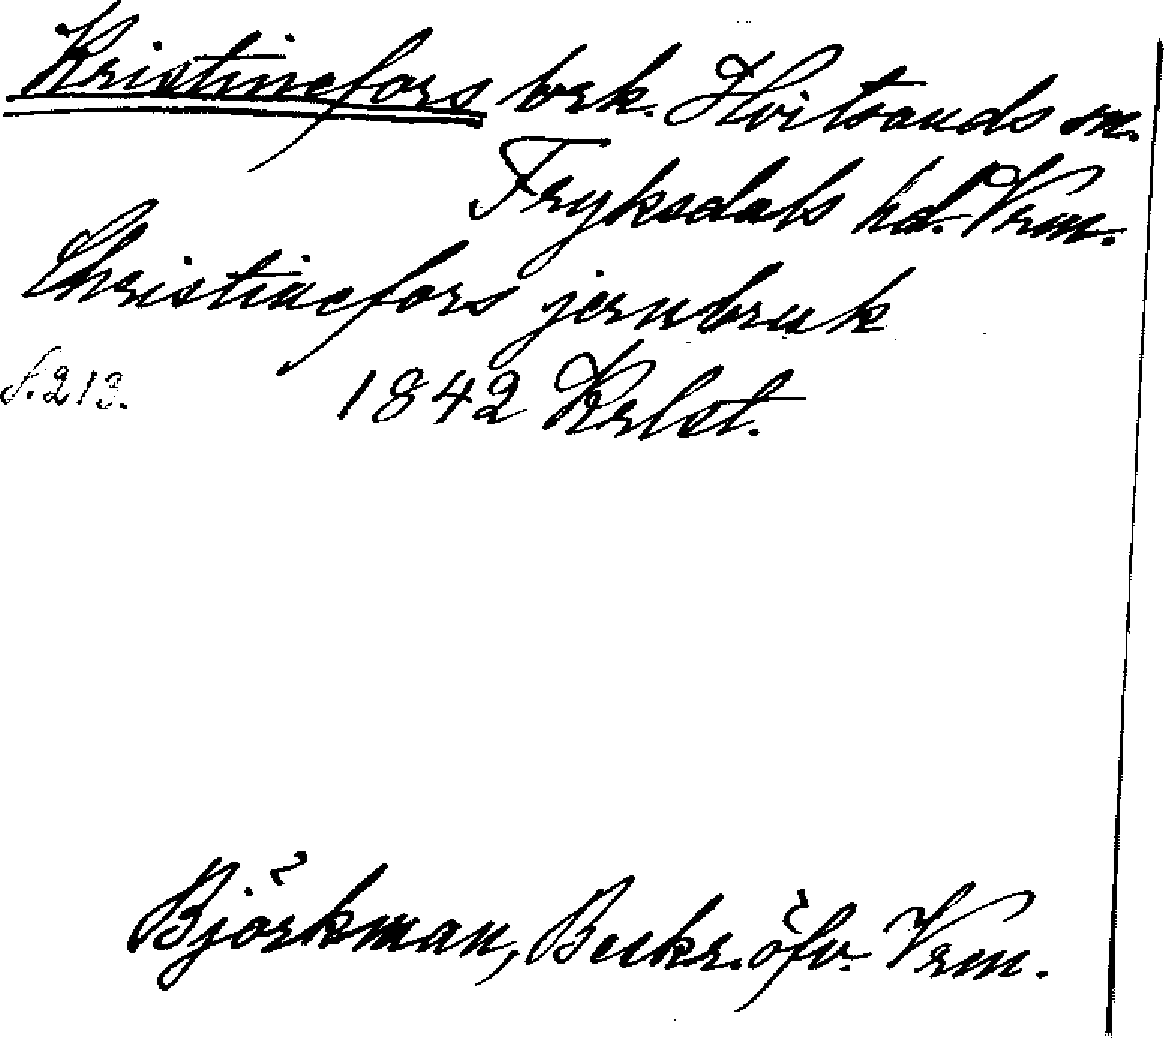 Kristinefors brk. Hvitsands sn.
Fryksdals hd. Vrm.
Christinefors jernbruk
S. 213. 1842 Krlst.
Björkman, Beskr. öfv. Vrm.